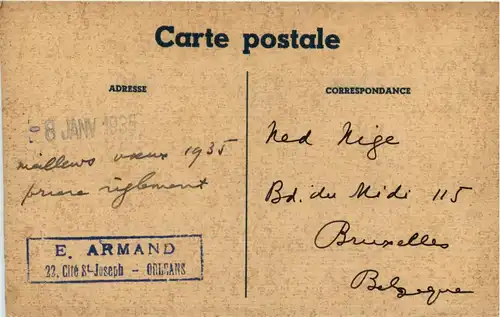 Carte postale
ADRESSE
8 JANV 1935
meilleurs vœux 1935
prière règlement
E. ARMAND
22, Cité St-Joseph - ORLEANS
CORRESPONDANCE
Ned Nige
Bd. du Midi 115
Bruxelles
Belgique